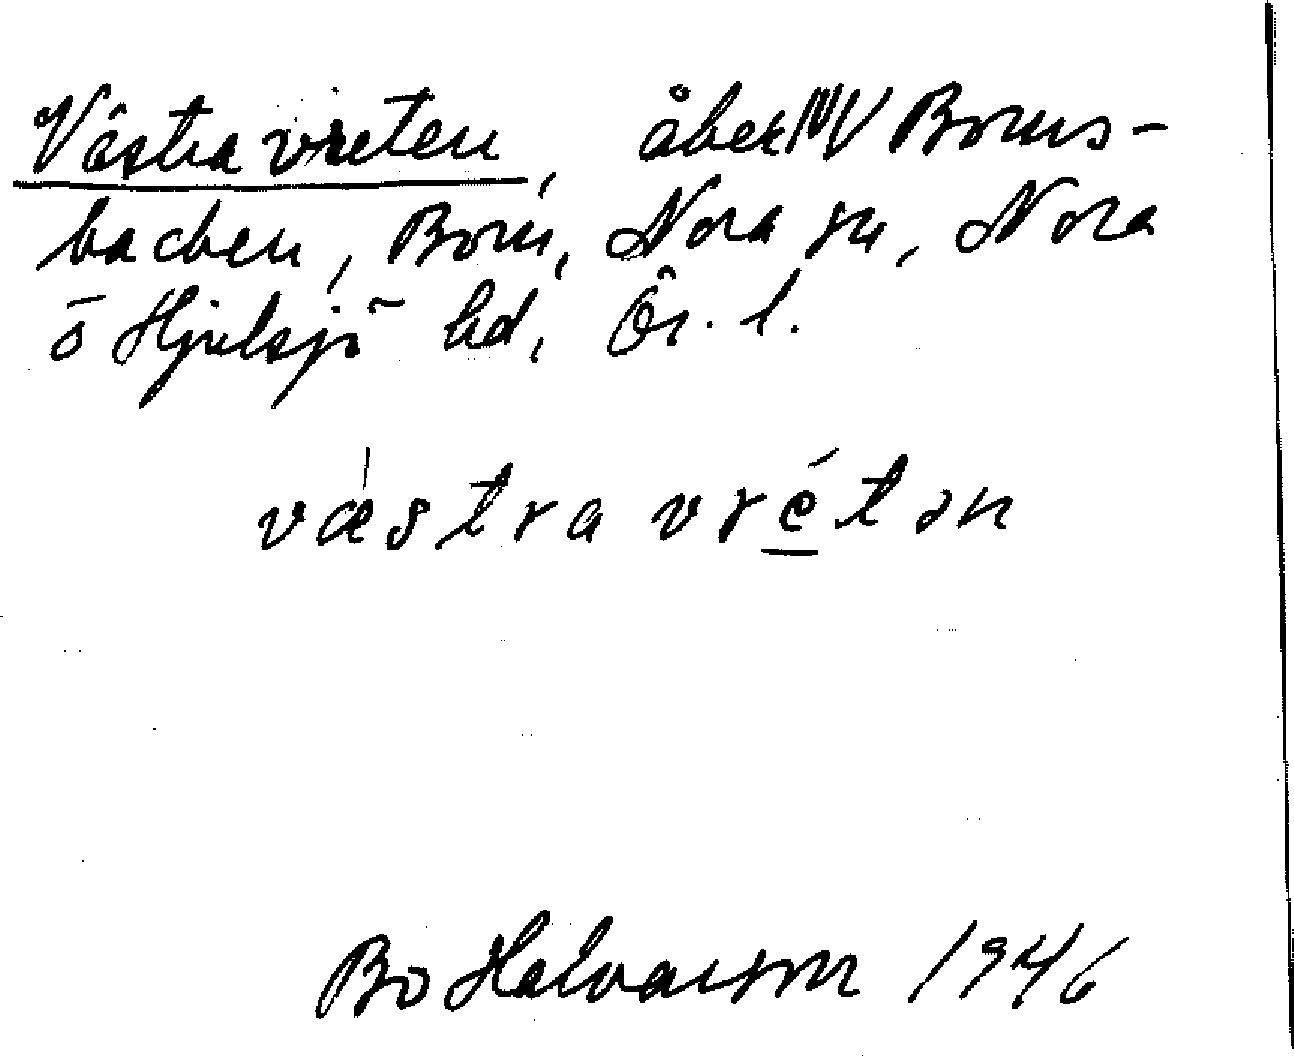 Västra vreten, åker NV Borns-
backen, Born, Nora sn, Nora
o Hjulsjö hd, Ör. l.
væstra vrétən
Bo Halvarson 1946